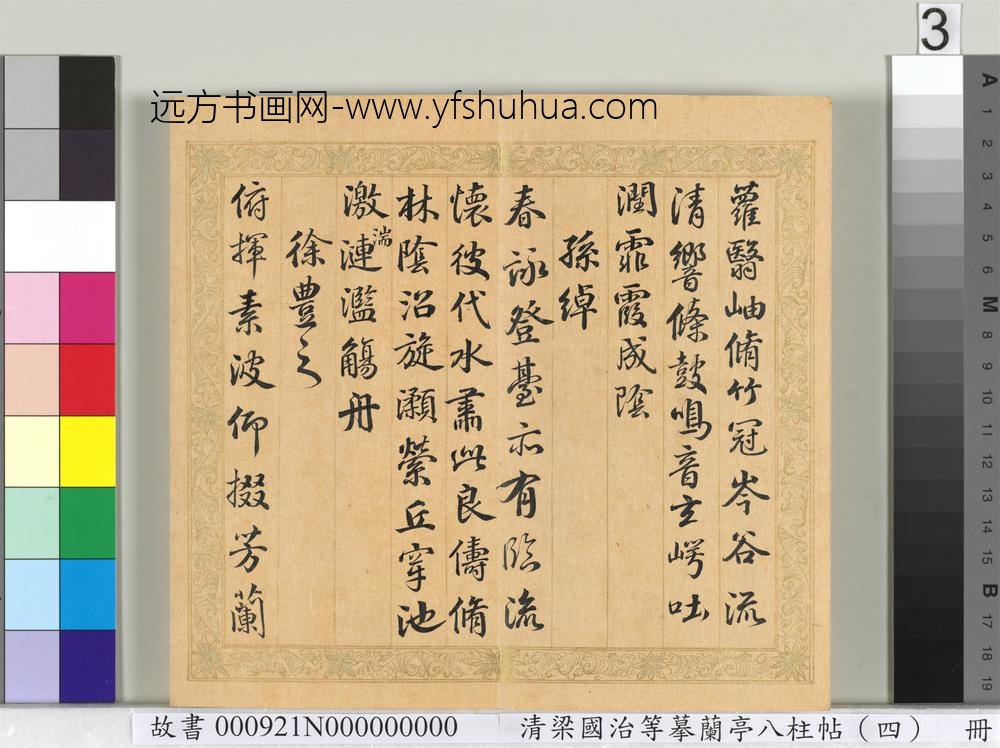 3
远方书画网-www.yfshuhua.com
蘿翳岫脩竹冠岑谷流
清響條鼓鳴音玄崿吐
潤霏霞成陰
孫綽
春詠登臺亦有臨流
懷彼代水肅此良儔脩
林陰沼旋瀨縈丘穿池
激湍
漣濫觴舟
徐豊之
俯揮素波仰掇芳蘭
A
1
2
3
4
5
6
M
8
9
10
11
12
13
14
15
B
17
18
19
故書 000921N000000000 清梁國治等摹蘭亭八柱帖（四） 冊